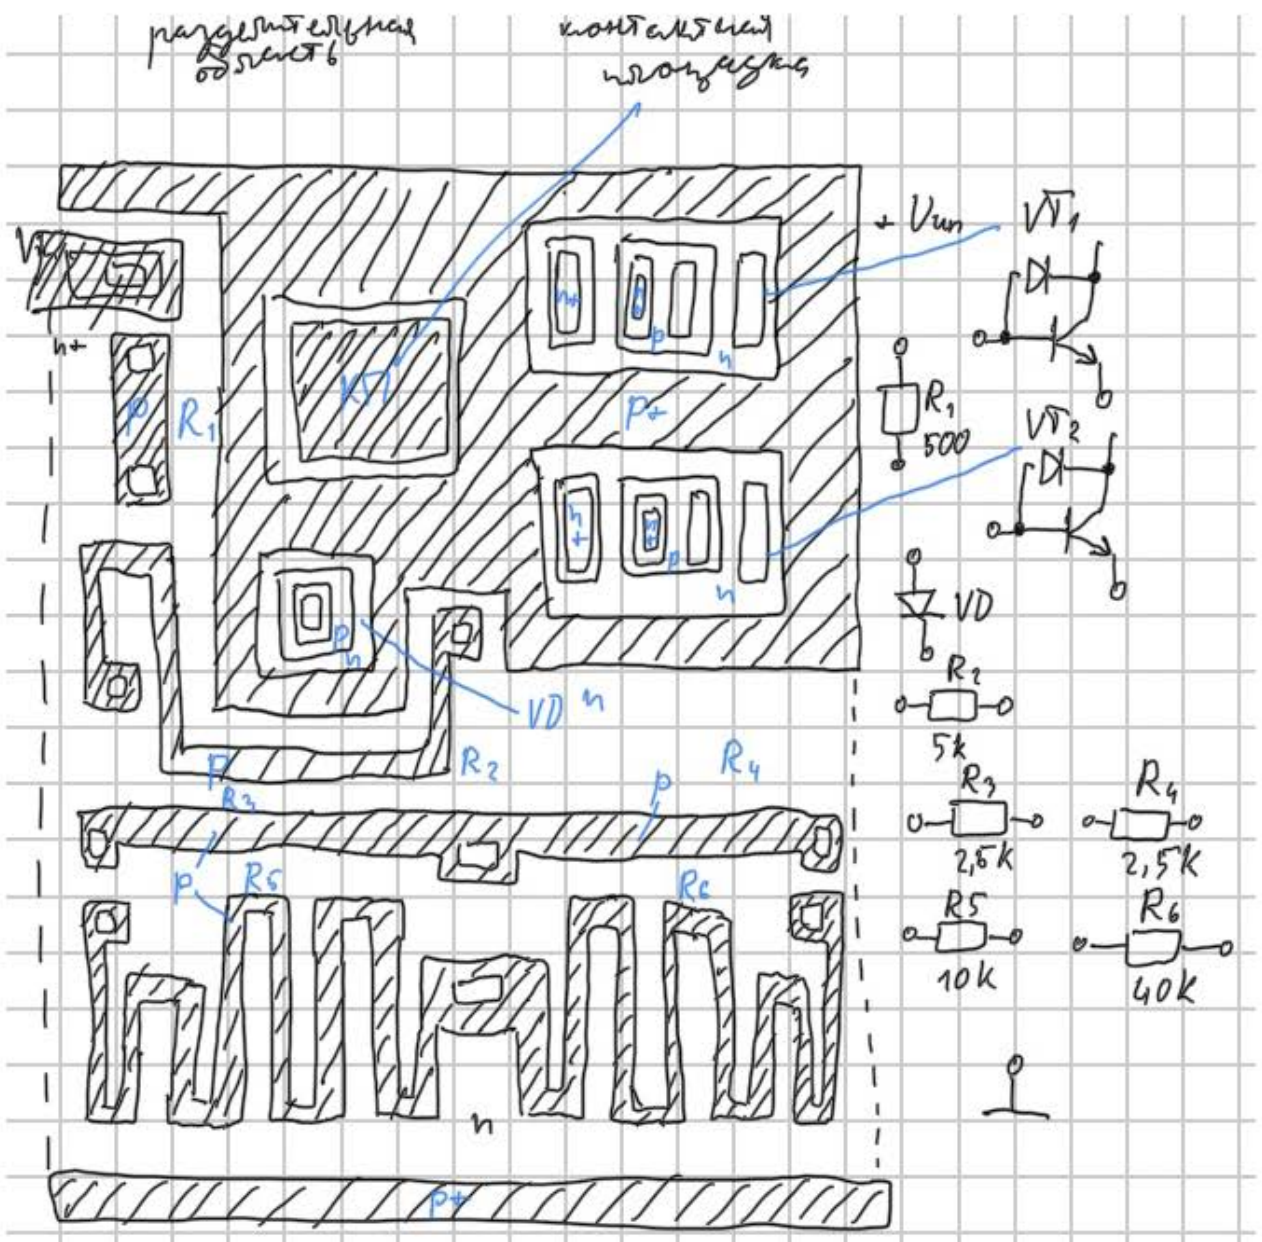 разделительная
область
контактная
площадка
+ Uип
VT1
n+
p
R1
КП
n+
n+
p
n
p+
R1
500
VT2
n+
n+
p
n
p
n
VD
n
VD
R2
5k
p
R3
R2
p
R4
R3
2,5k
R4
2,5k
p
R5
R6
R5
10k
R6
40k
n
p+